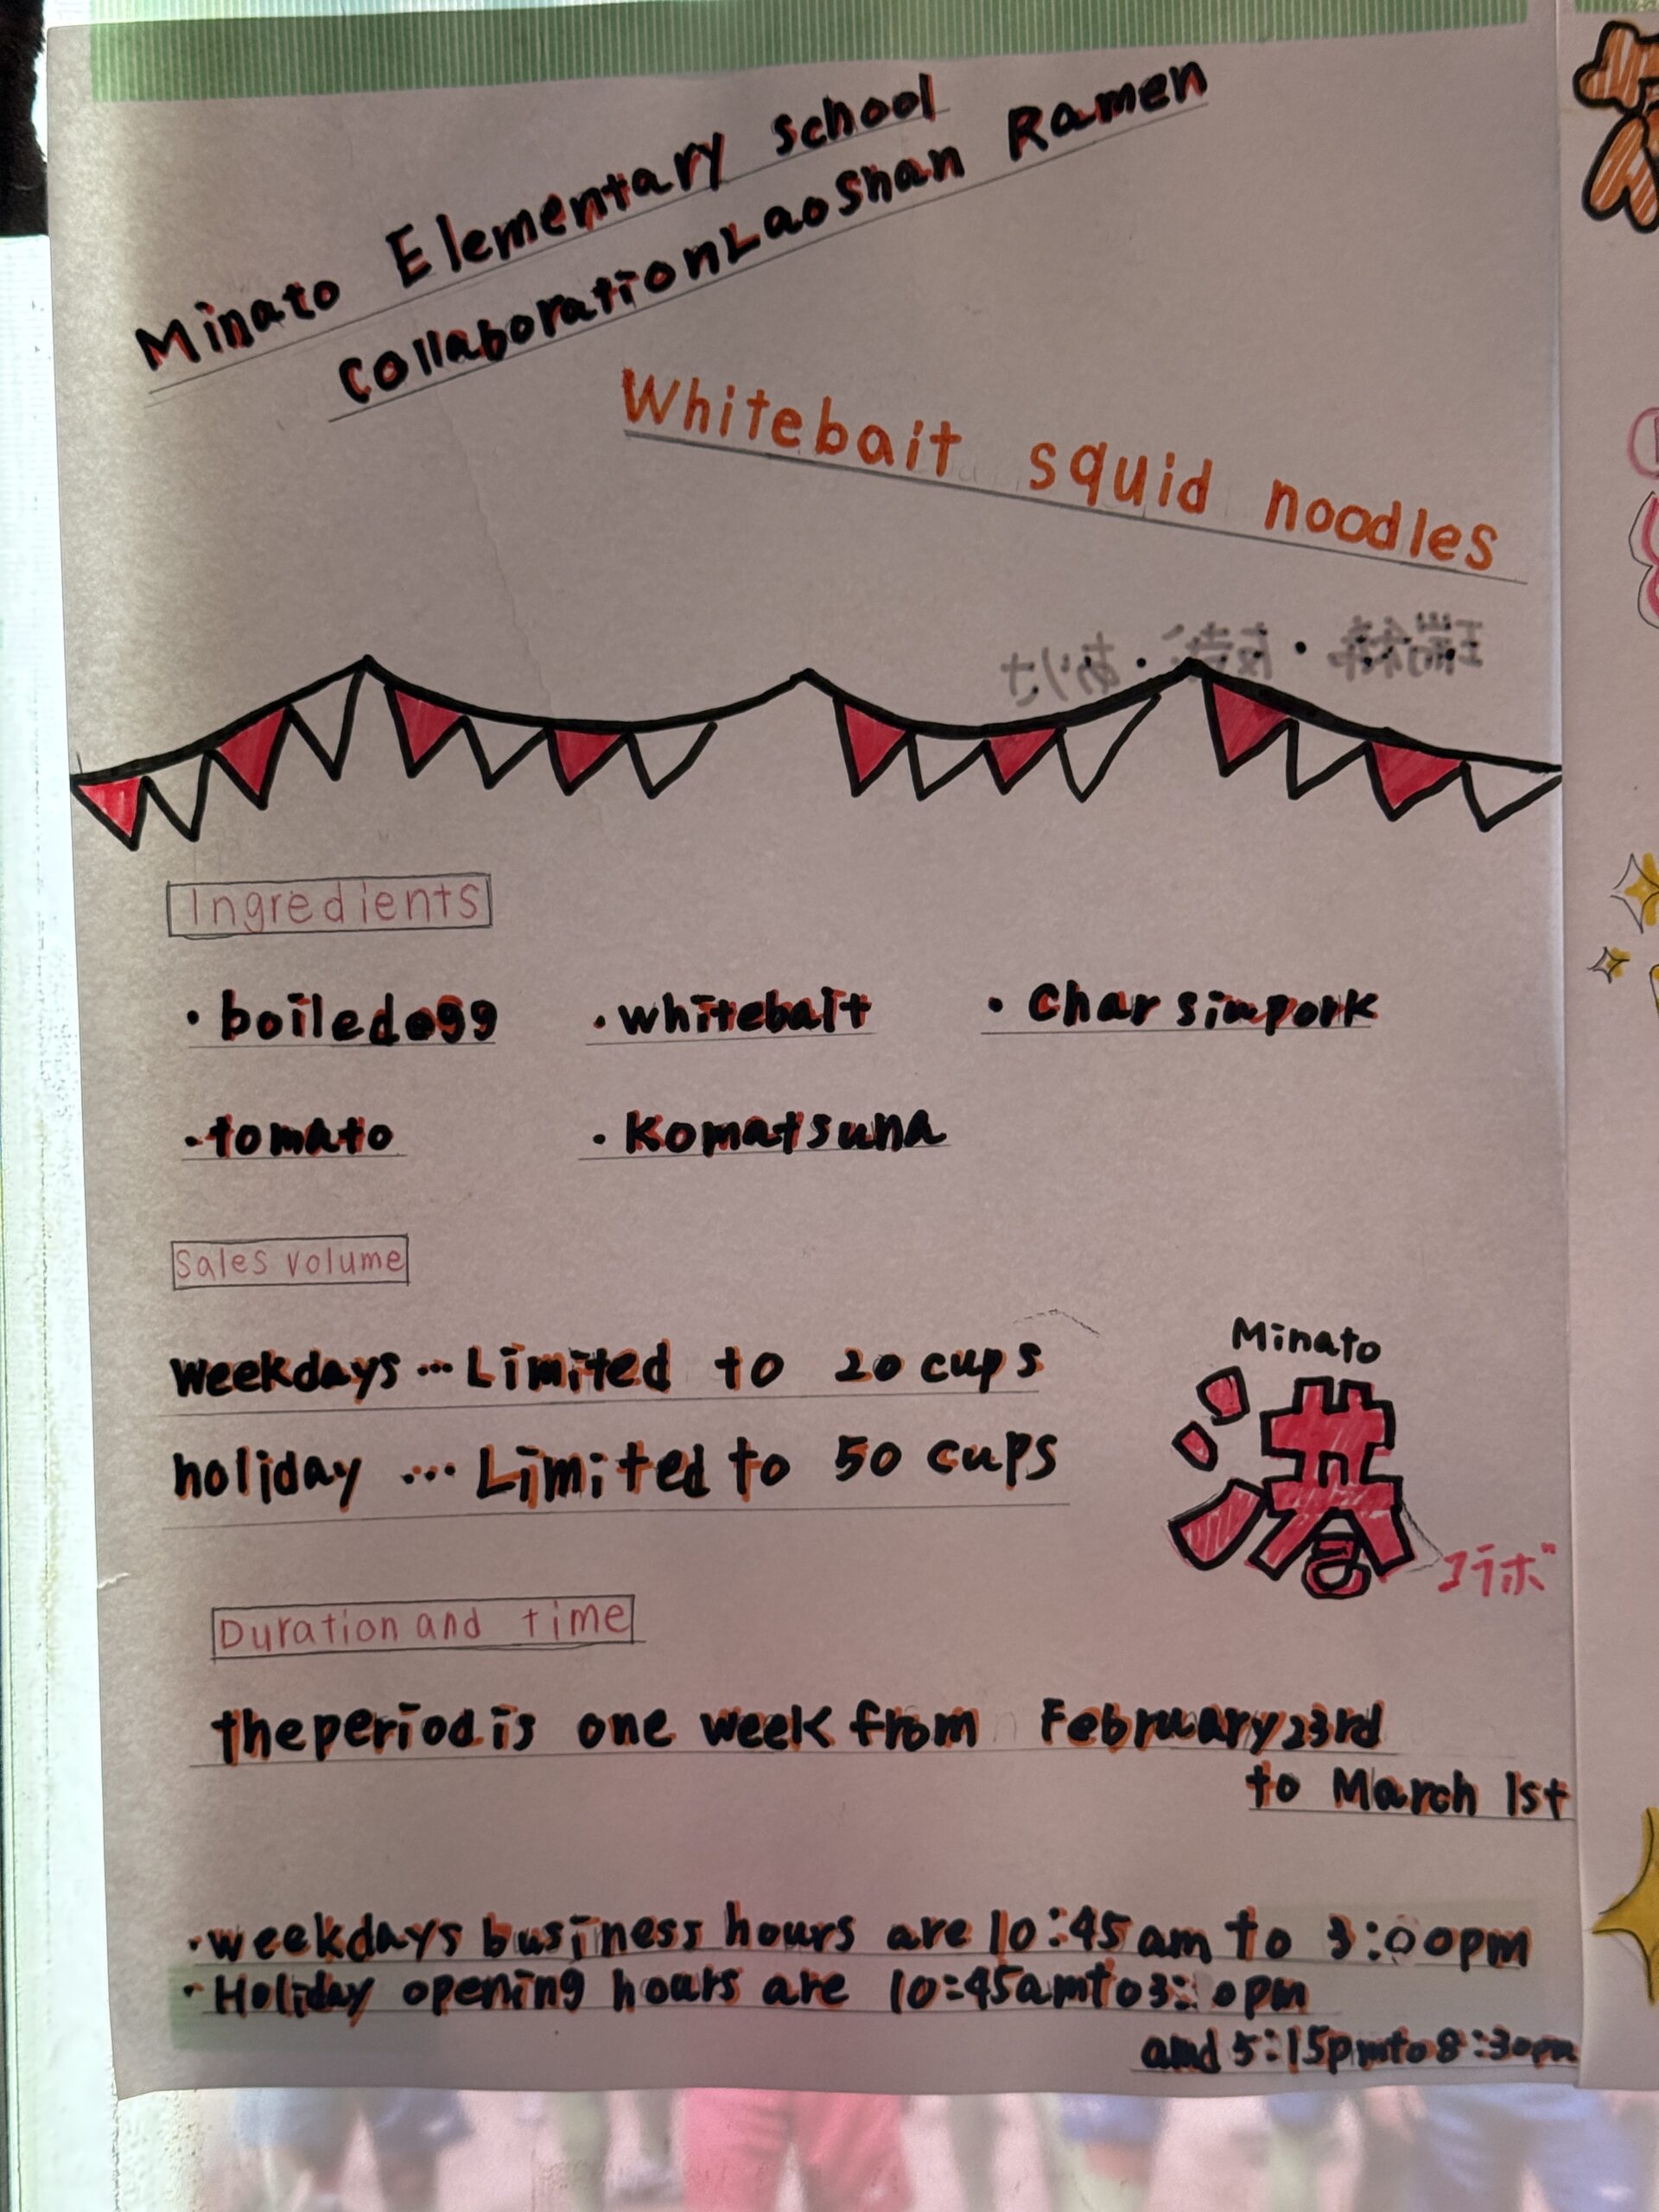 Minato Elementary school
Collaboration LaoShan Ramen
Whitebait squid noodles
瑞稀・友彰・ありさ
Ingredients
・boiledegg ・whitebait ・Char simpork
・tomato ・Komatsuna
Sales volume
weekdays…Limited to 20 cups
holiday …Limited to 50 cups
Minato
港
コラボ
Duration and time
the period is one week from February 23rd
to March 1st
・weekdays business hours are 10:45 am to 3:00pm
・Holiday opening hours are 10:45am to 3:  0pm
and 5:15pm to 8:30pm